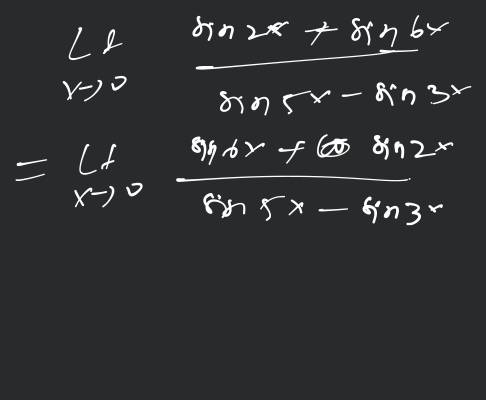 Lt x→0 (sin 2x + sin 6x) / (sin 5x − sin 3x)
= Lt x→0 (sin 6x + sin 2x) / (sin 5x − sin 3x)